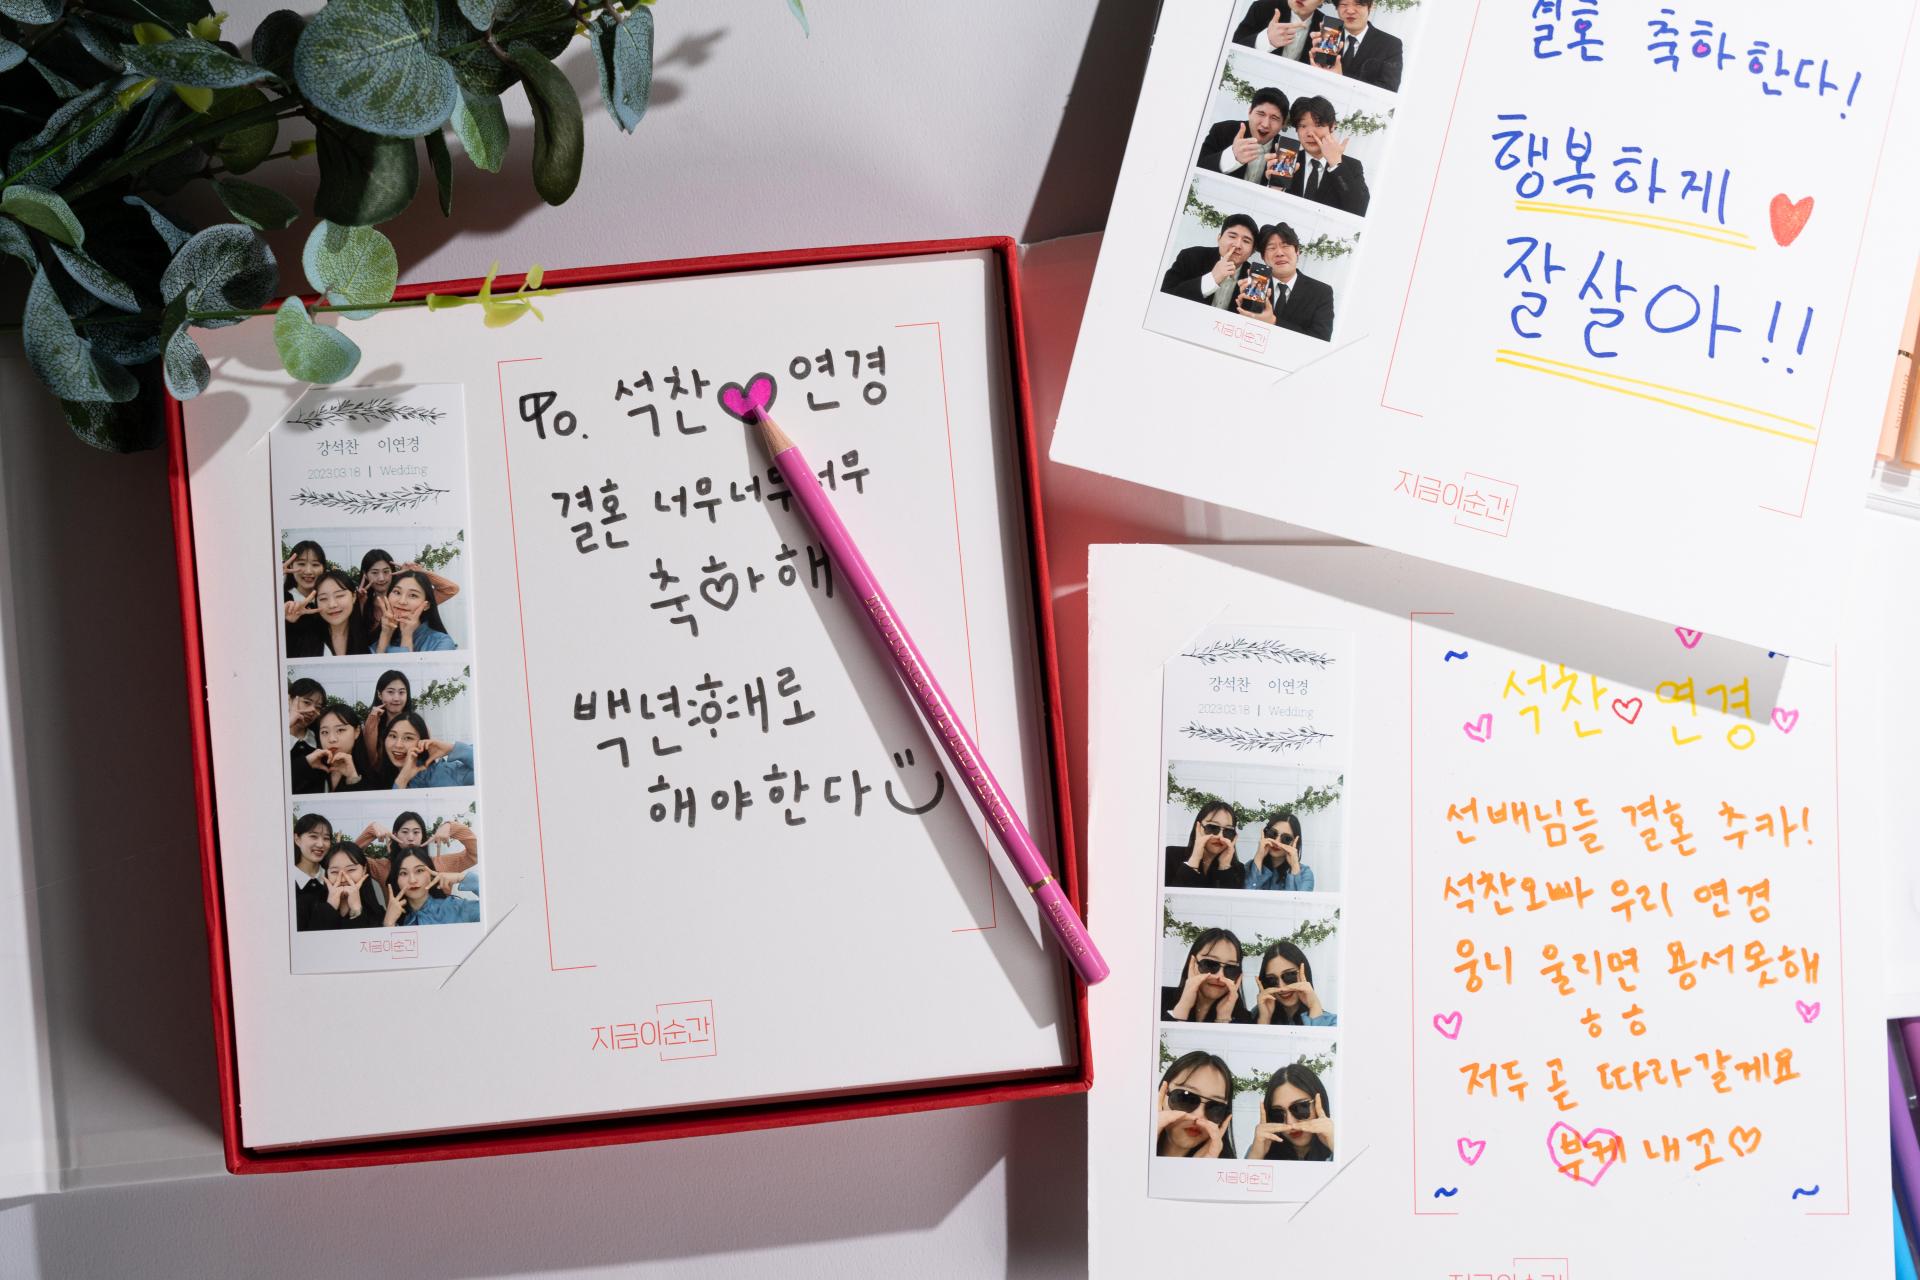 강석찬 이연경
2023.03.18 | Wedding
지금이순간
To. 석찬♥연경
결혼 너무너무너무
축하해
백년해로
해야한다
지금이순간
결혼 축하한다!
행복하게 ♥
잘살아!!
지금이순간
지금이순간
강석찬 이연경
2023.03.18 | Wedding
지금이순간
~ ~
석찬♡연경
선배님들 결혼 추카!
석찬오빠 우리 연경
웅니 울리면 용서못해
ㅎㅎ
저두 곧 따라갈게요
부케 내꼬♡
~ ~
지금이순간